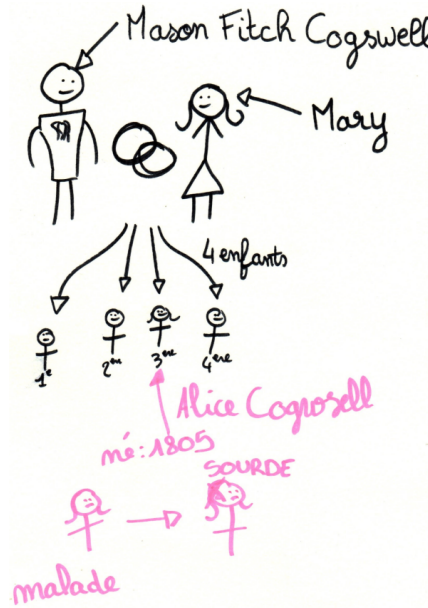 Mason Fitch Cogswell
Mary
4 enfants
1e
2ère
3ère
4ère
Alice Cogosell
né: 1805
SOURDE
malade